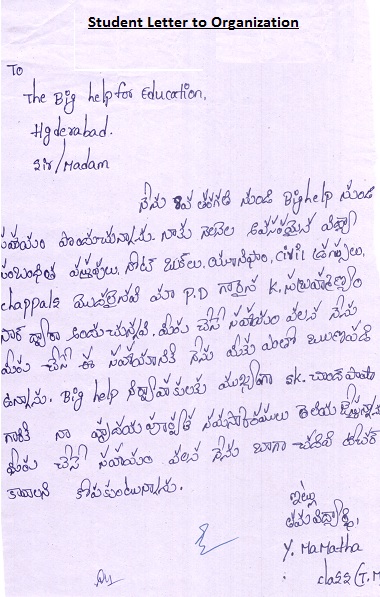 Student Letter to Organization
To
The Big help for Education,
Hyderabad.
Sir/Madam
నేను 8వ తరగతి నుండి Bighelp నుండి
సహాయం పొందుచున్నాను. నాకు కావలసిన విద్యా
సంబంధిత వస్తువులు, నోట్ బుక్‌లు, యూనిఫాం, civil డ్రస్సులు,
chappals మొదలైనవి మా P.D గారైన K. సుబ్రహ్మణ్యం
సార్ ద్వారా అందుచున్నవి. మీరు చేసే సహాయం వలన నేను
మీరు చేసే ఈ సహాయానికి నేను మీకు ఎంతో ఋణపడి
ఉన్నాను. Big help నిర్వాహకులకు ముఖ్యంగా sk. చాంద్ పాషా
గారికి నా హృదయ పూర్వక నమస్కారములు తెలియ చేస్తున్నాను
మీరు చేసే సహాయం వలన నేను బాగా చదివి టీచర్
కావాలని కోరుకుంటున్నాను.
ఇట్లు
తమ విద్యార్థి,
Y. Mamatha
class (T.M